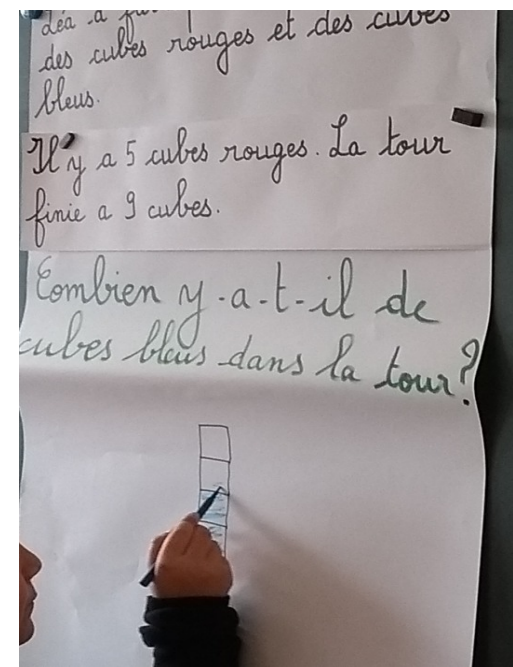 Léa a
des cubes rouges et des cubes
bleus.
Il y a 5 cubes rouges. La tour
finie a 9 cubes.
Combien y-a-t-il de
cubes bleus dans la tour?